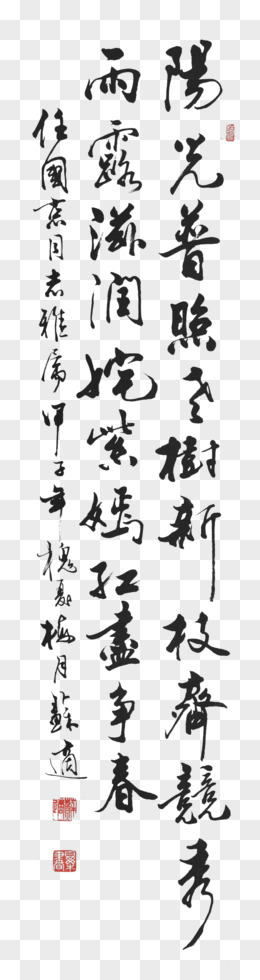 陽光普照老樹新枝齊競秀
雨露滋潤姹紫嫣红盡争春
任國同志雅屬甲子年槐夏梅月蘇適